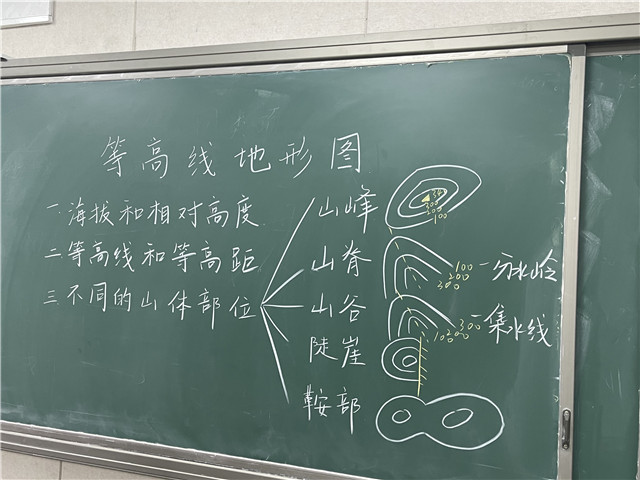 等高线地形图
一海拔和相对高度
二等高线和等高距
三不同的山体部位
山峰
300
200
100
山脊
100
200
300
一分水岭
山谷
100
200
300
一集水线
陡崖
鞍部